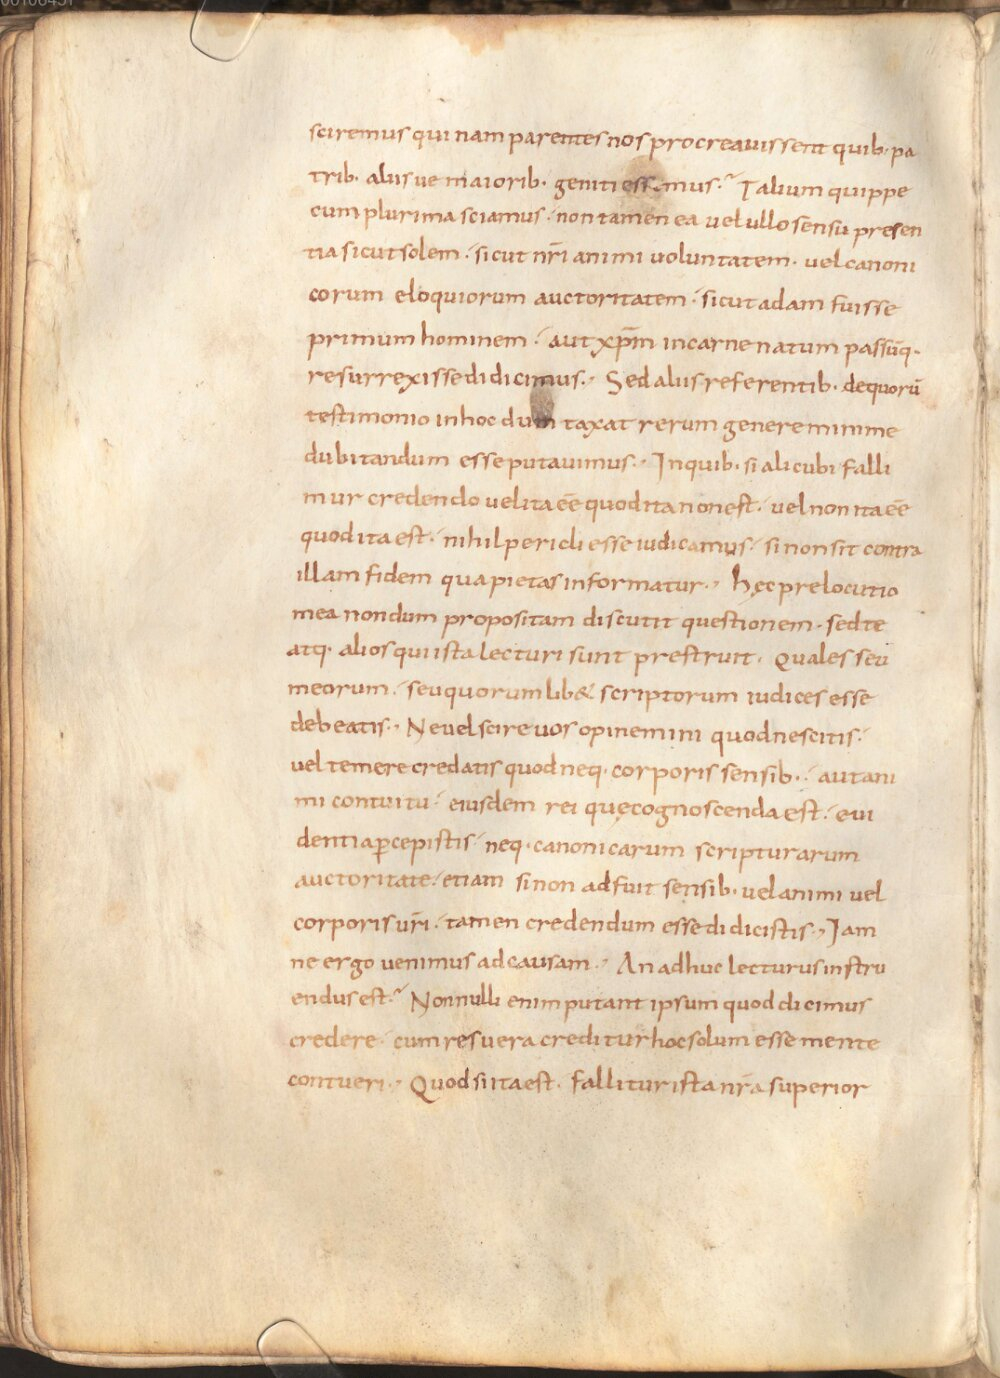 sciremus qui nam parentes nos procreavissent quib· pa
trib· aliis ve maioribꞏ geniti essemus·᷃ Talium quippe
cum plurima sciamus· non tamen ea vel ullo sensu presen
tia sicut solem· sicut nr̄i animi voluntatem· vel canoni
corum eloquiorum auctoritatem· sicut adam fuisse
primum hominem· aut xp̄m in carne natum passūq·
resurrexisse didicimus·, Sed aliis referentib· de quorū
testimonio in hoc dum taxat rerum genere minime
dubitandum esse putavimus·, In quib· si alicubi falli
mur credendo vel ita eē quod ita non est· vel non ita eē
quod ita est· nihil pericli esse iudicamus· si non sit contra
illam fidem qua pietas informatur·, Hęc prelocutio
mea nondum propositam discutit questionem· sed te
atq· alios qui ista lecturi sunt prestruit· Quales seu
meorum· seu quorumlib& scriptorum iudices esse
debeatis·, Ne vel scire vos opinemini quod nescitis·
vel temere credatis quod neq· corporis sensib·· aut ani
mi contuitu· eiusdem rei quę cognoscenda est· evi
denti ꝑcepistis· neq· canonicarum scripturarum
auctoritate· etiam si non adfuit sensib· vel animi vel
corporis ur̄i· tamen credendum esse didicistis·, Jam
ne ergo venimus ad causam·, An adhuc lecturus instru
endus est·᷃ Nonnulli enim putant ipsum quod dicimus
credere· cum res vera creditur hoc solum esse mente
contueri·, Quod si ita est· fallitur ista nr̄a superior